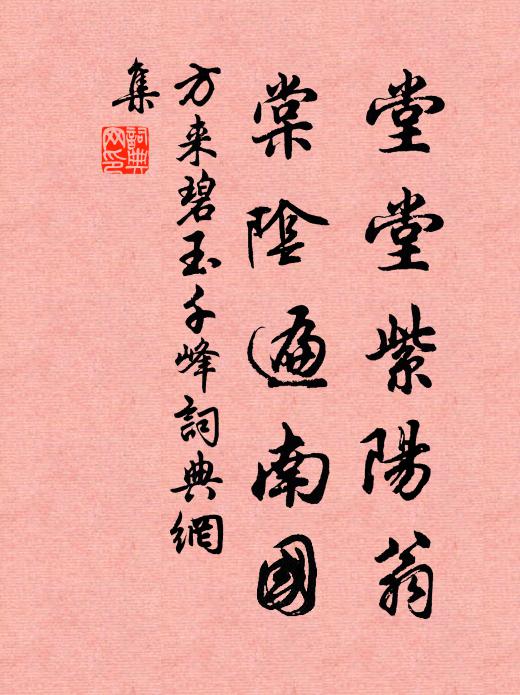 堂堂紫陽翁
棠陰遍南國
方来碧玉千峰詞典網
集
詞典網印